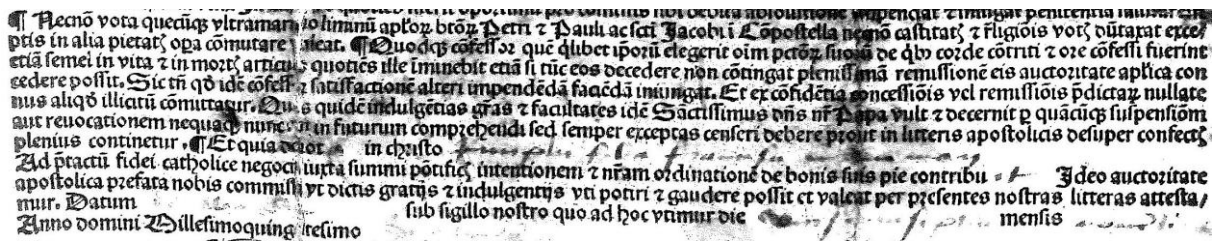 ¶ Necnō vota quecūqȝ vltramarinū liminū aplōȝ brōȝ Petri ⁊ Pauli ac scti Jacobi ī Cōpostella necnō castitatȝ ⁊ rligiōis votȝ dūtaxat exce/
ptis in alia pietatȝ opa cōmutare valeat. ¶ Quodqȝ cōfessor quē qlibet ipōrū elegerit oīm pctōȝ suoȝ de qbꝰ corde cōtriti ⁊ ore cōfessi fuerint
etiā semel in vita ⁊ in mortȝ articulo quotiēs ille īminebit etiā si tūc eos decedere non cōtingat plenissimā remissionē eis auctoritate aplica con
cedere possit. Sic tn̄ qd̄ idē cōfessor satisfactionē alteri impendēdā faciēdā iniungat. Et ex cōfidētia concessiōis vel remissiōis p̄dictaȝ nullate
nus aliqd̄ illicitū cōmittatur. Quas quidē indulgētias gr̄as ⁊ facultates idē Sāctissimus dn̄s nr̄ Papa vult ⁊ decernit p quācūqȝ suspensiōm
aut reuocationem nequaqȝ nunc in futurum comprehendi sed semper exceptas censeri debere prout in litteris apostolicis desuper confectȝ
plenius continetur. ¶ Et quia in christo
Ad p̄tactū fidei catholice negocij iuxta summi pōtificȝ intentionem ⁊ nr̄am ordinationē de bonis suis pie contribu Ideo auctoritate
apostolica prefata nobis commissa vt dictis gratijs ⁊ indulgentijs vti potiri ⁊ gaudere possit et valeat per presentes nostras litteras attesta/
mur. Datum sub sigillo nostro quo ad hoc vtimur die mensis
Anno domini Millesimoquingentesimo